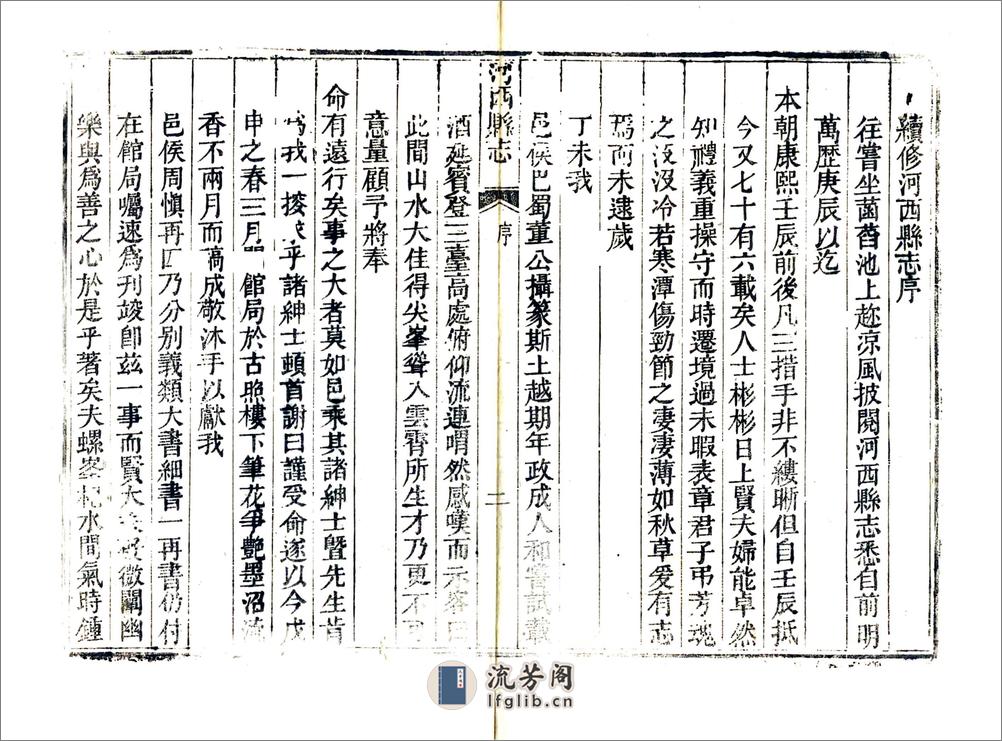 續修河西縣志序
往嘗坐菡萏池上趂涼風披閱河西縣志悉自前明
萬歷庚辰以迄
本朝康熙壬辰前後凡三措手非不縷晰但自壬辰抵
今又七十有六載矣人士彬彬日上賢夫婦能卓然
知禮義重操守而時遷境過未暇表章君子弔芳魂
之汲汲冷若寒潭傷勁節之凄凄薄如秋草爰有志
焉而未逮歲
丁未我
邑侯巴蜀董公攝篆斯土越期年政成人和嘗試載
酒延賓登三臺高處俯仰流連喟然感嘆而示客曰
此間山水大佳得尖峯聳入雲霄所生才乃更不
意量顧予將奉
命有遠行矣事之大者莫如邑乘其諸紳士曁先生肯
我一乎諸紳士頓首謝曰謹受命遂以今戊
申之春三月館局於古照樓下筆花爭艷墨沼流
香不兩月而稿成敬沐手以獻我
邑侯周愼再四乃分別義類大書細書一再書仍付
在館局囑速爲刋竣卽茲一事而賢大微闡幽
樂與爲善之心於是乎著矣夫螺水間氣時鍾
河西縣志
序
二
流芳阁
lfglib.cn